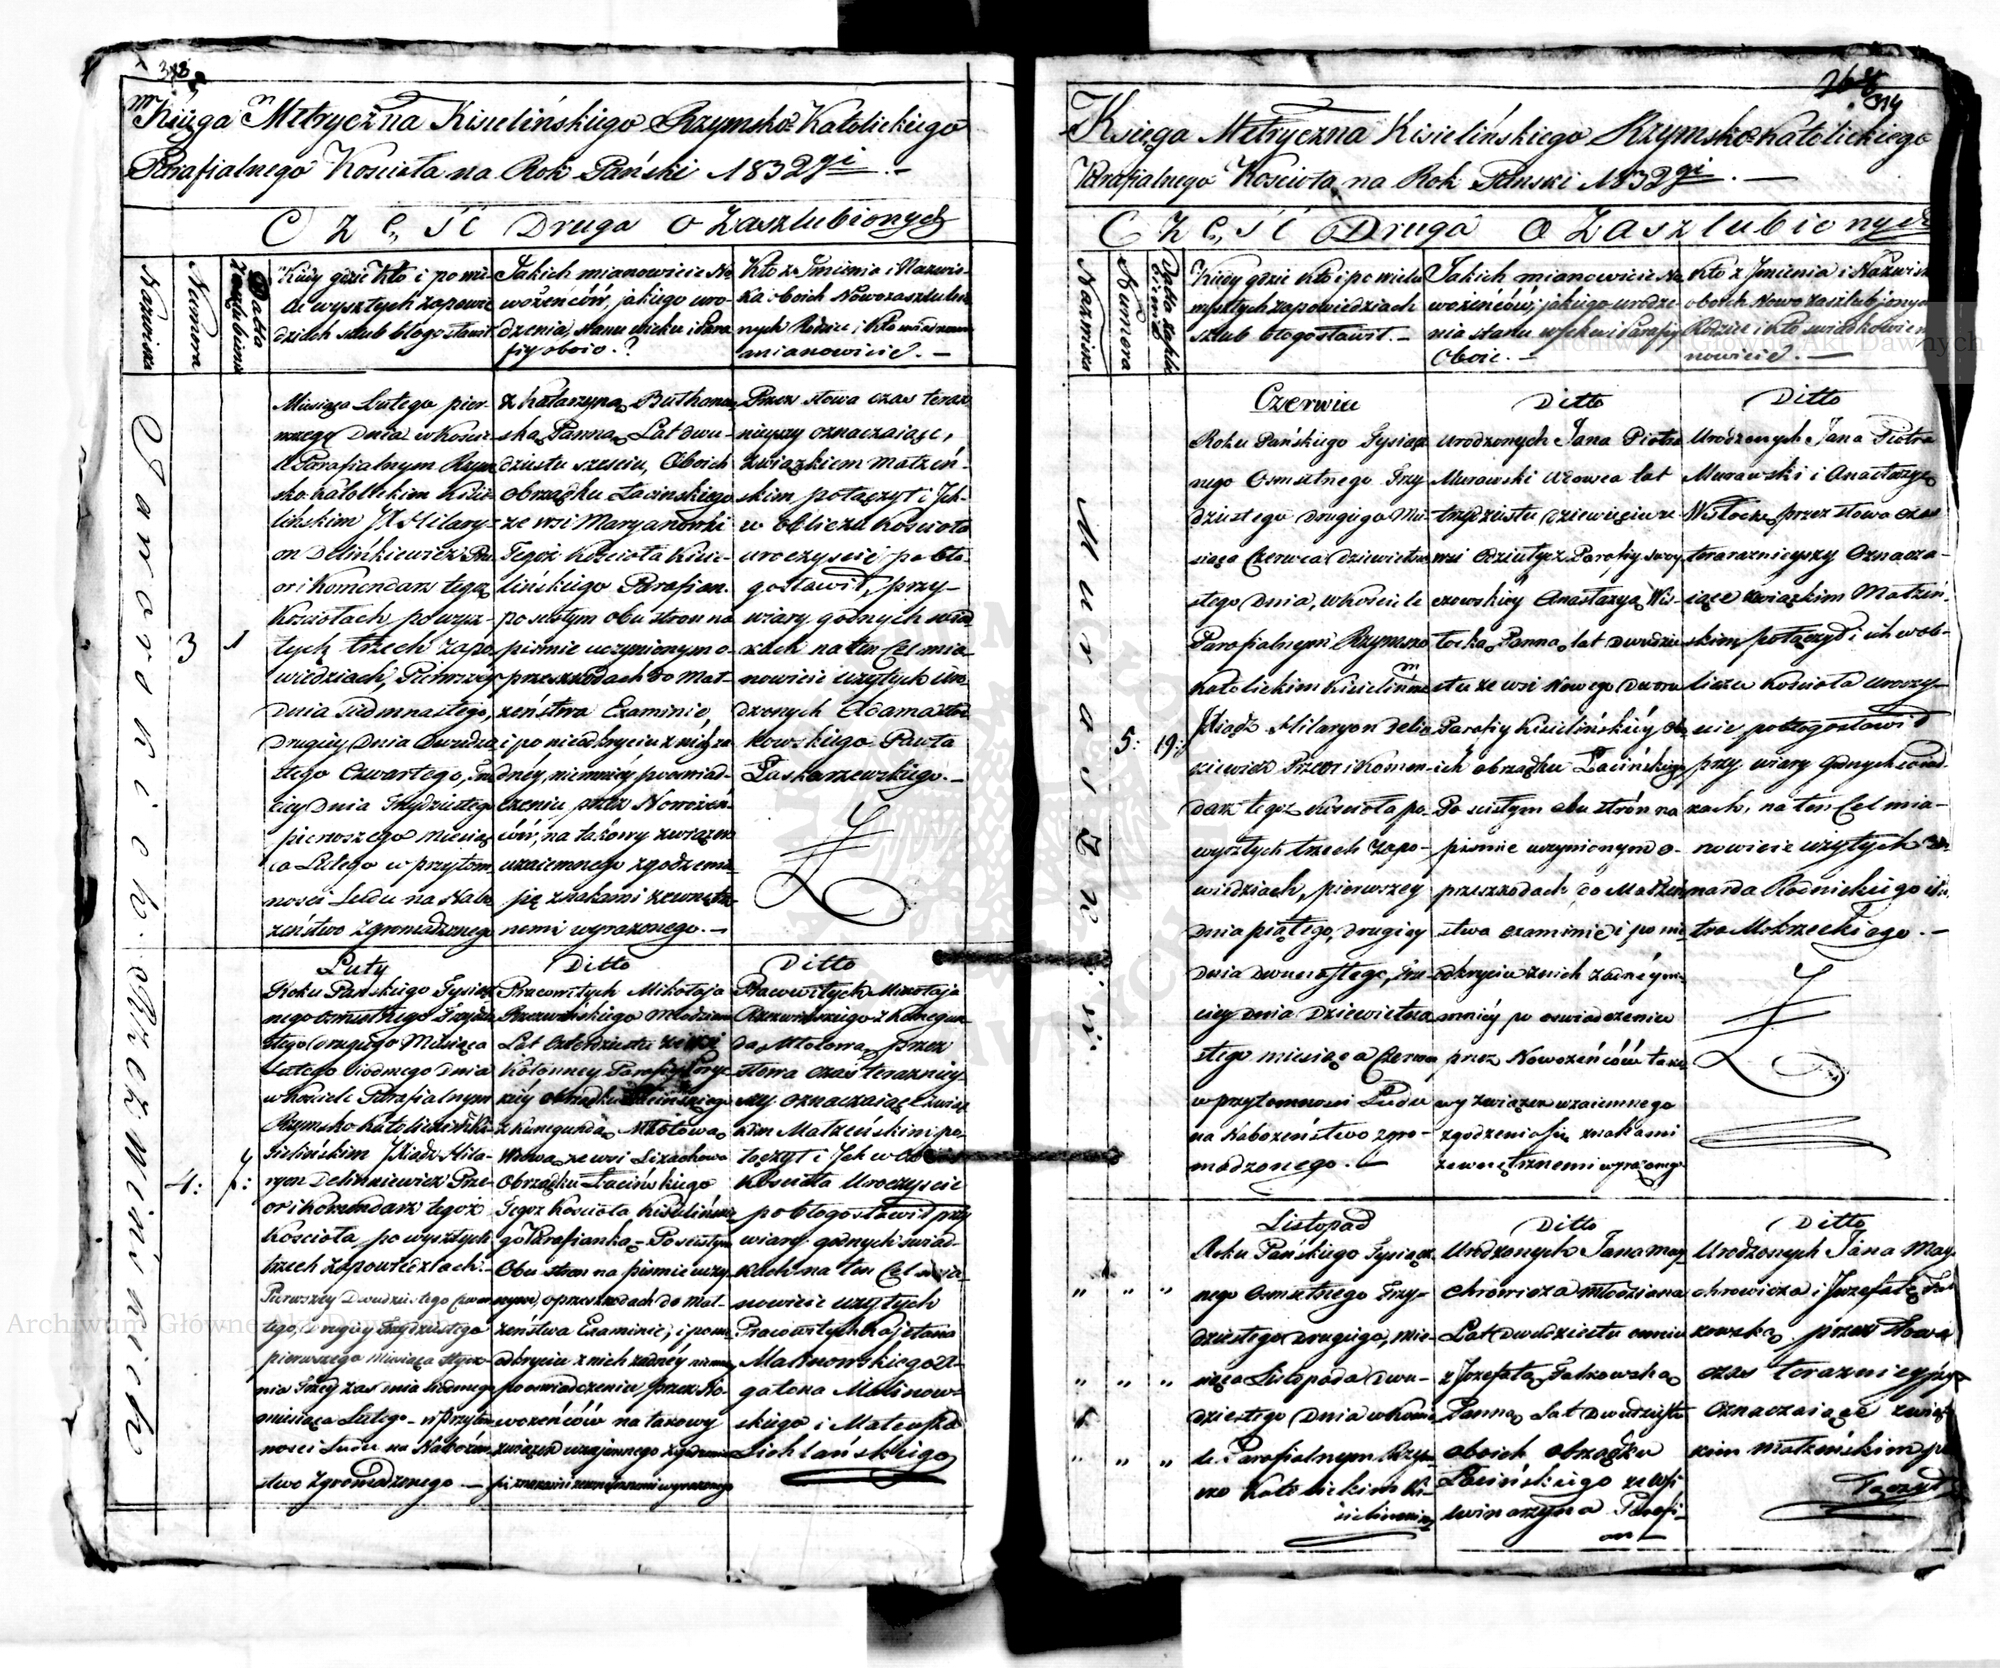 Księga Metryczna Kisielińskiego Rzymsko-Katolickiego
Parafialnego Kościoła na Rok Pański 1832gi. —
Część Druga o Zaszlubionych
Nazwiska
Numera
Data Zaszlubienia
Kiedy gdzie Kto i po wie-
lu wyszłych zapowie
dziach szlub błogosławił
Jakich mianowicie No
wożeńców, jakiego uro-
dzenia, stanu, wieku i Para
fiy oboie.?
Kto z Imienia i Nazwis-
ka oboich Nowozaszlubio
nych Rodzice i Kto świadkowie
mianowicie. —
3
1
Miesiąca Lutego pier-
wszego Dnia w Koście
le Parafialnym Rzym
sko-Katolickim Kisie-
lińskim JX Hilary-
on Delinkiewicz Prze
or i Komendarz tegoż
Kościoła, po wysz-
łych trzech Zapo
wiedziach, Pierwszey
Dnia Siedmnastego,
Drugiey Dnia Dwudzie
stego Czwartego, Trze
ciey Dnia Trzydziestego
pierwszego Miesią
ca Lutego w przytom
ności Ludu na Nabo
żeństwo zgromadzonego
z Katarzyną Buthanow
ską Panną, Lat dwu-
dziestu sześciu, Oboich
obrządku Łacińskiego
ze wsi Maryanówki
Tegoż Kościoła Kisie-
lińskiego Parafian.
po ścisłym obu stron na
piśmie uczynionym o
przeszkodach do Mał-
żeństwa Examinie,
i po nieodkryciu z nich ża
dnéy, niemniéy poświad-
czeniu, przez Nowożeń-
ców, na takowy związek
wzaiemnego zgodzenia
się znakami zewnętrz-
nemi wyrażonego. —
Przez słowa czas teraz
nieyszy oznaczaiące,
Związkiem Małżeń-
skim połączył i Ich-
w obliczu Kościoła
uroczyście pobło-
gosławił, przy-
wiary godnych świad
kach na ten Cel mia
nowicie użytych Uro-
dzonych Adama
kowskiego Pawła
Laskarzewskiego. —
4:
7:
Luty
Roku Pańskiego Tysiącz
nego Osmsetnego Trzydzie
stego Drugiego Miesiąca
Lutego Siodmego dnia
w Kościele Parafialnym
Rzymsko Katolickim Ki-
sielińskim JXiądz Hila-
ryon Delinkiewicz Prze-
or i Komendarz tegoż
Kościoła, po wyszłych
trzech zapowiedziach:
Pierwszey Dwudziestego Czwar
tego, drugiey Trzydziestego
pierwszego Miesiąca Stycz-
nia Trzeciey zaś dnia siodmego
miesiąca Lutego — w przytom
ności Ludu na Nabożeń
stwo zgromadzonego —
Ditto
Pracowitych Mikołaja
Rzezwińskiego Młodziana
Kołonney Parafiy
kiéy obrządku Łacińskiego
z Kunegundą Młotową
Wdową, ze wsi
Obrządku Łacińskiego
Tegoż Kościoła Kisielińskie
go Parafianką — Po ścisłym
Obu stron na piśmie uczy-
nionym, o przeszkodach do Mał-
żeństwa Examinie, i po nie
odkryciu z nich żadnéy niemniey
po oświadczeniu, przez No-
wożeńców na takowy
związek wzajemnego zgodzenia
się znakami zewnętrznemi wyrażonego
Ditto
Pracowitych Mikołaja
Rzezwińskiego z Kunegun
dą Młotową, przez
słowa czas terazniey-
szy oznaczaiące Zwiąż
kiem Małżeńskim po-
łączył i Ich w Obliczu
Kościoła Uroczyście
pobłogosławił przy
wiary godnych świad-
kach na ten Cel mia-
nowicie użytych
Pracowitych Kajetana
Malinowskiego A-
gatona Malinow-
skiego i Mateusza
Lichlańskiego
Księga Metryczna Kisielińskiego Rzymsko-Katolickiego
Parafialnego Kościoła na Rok Pański 1832gi. —
Część Druga o Zaszlubionych
Nazwiska
Numera
Kiedy gdzie Kto i po wielu
wyszłych zapowiedziach
szlub błogosławił. —
Jakich mianowicie No
wożeńców, jakiego urodze
nia stanu wieku i Parafiy
Oboie. —
Kto z Imienia i Nazwisk
oboich Nowo zaszlubionych
Rodzice i Kto świadkowie mia
nowicie. —
Murawski
5:
19:
Czerwiec
Roku Pańskiego Tysiącz
nego Osmsetnego Trzy
dziestego drugiego Mie
siąca Czerwca dziewiętna
stego Dnia, w Kościele
Parafialnym Rzymsko
Katolickim Kisielińskim
JXiądz Hilaryon Delin
kiewicz Przeor i Komen-
darz tegoż Kościoła po-
wyszłych trzech zapo-
wiedziach, pierwszey
dnia piątego, drugiey
dnia dwunastego, Trze
ciey dnia Dziewiętna
stego miesiąca Czerwca
w przytomności Ludu
na Nabożeństwo zgro-
madzonego. —
Ditto
Urodzonych Jana Piotra
Murawski Wdowca lat
trzydziestu dziewięciu ze
wsi Parafiy
Anastazyą Wis-
łocką, Panną, lat dwudzie
stu ze wsi Nowego Dworu
Parafiy Kisielińskiéy Obo
ich obrządku Łacińskiego
Po ścisłym obu strón na
piśmie uczynionym o-
przeszkodach do Małżeń
stwa examinie i po nie
odkryciu z nich żadnéy nie
mniéy po oświadczeniu
przez Nowożeńców tako
wy związek wzaiemnego
zgodzenia się znakami
zewnętrznemi wyrażonego
Ditto
Urodzonych Jana Piotra
Murawski i Anastazyą
Wisłocką, przez słowa czas
teraznieyszy Oznacza-
iące związkiem Małżeń-
skim, połączył i ich w ob-
liczu Kościoła uroczy-
ście pobłogosławił
przy wiary godnych świad-
kach, na ten Cel mia-
nowicie użytych
Rodnickiego i Pio
tra Mokrzeckiego. —
Listopad
Roku Pańskiego Tysiącz
nego Osmsetnego Trzy-
dziestego Drugiego, Mie-
siąca Listopada dwu-
dziestego Dnia w Koście
le Parafialnym Rzym
sko Katolickim Ki-
sielinskim
Ditto
Urodzonych Jana May
chrowicza Młodziana
Lat dwudziestu ośmiu
z Jozefatą Falkowską
Panną Lat Dwudziestu
oboich obrządku
Łacińskiego ze wsi
Parafi-
an
Ditto
Urodzonych Jana May
chrowicza i Jozefatę Fal
kowską, przez słowa
czas teraznieyszy
Oznaczaiące związ
kiem małżeńskim po
łączył
Archiwum Główne Akt Dawnych
Archiwum Główne Akt Dawnych